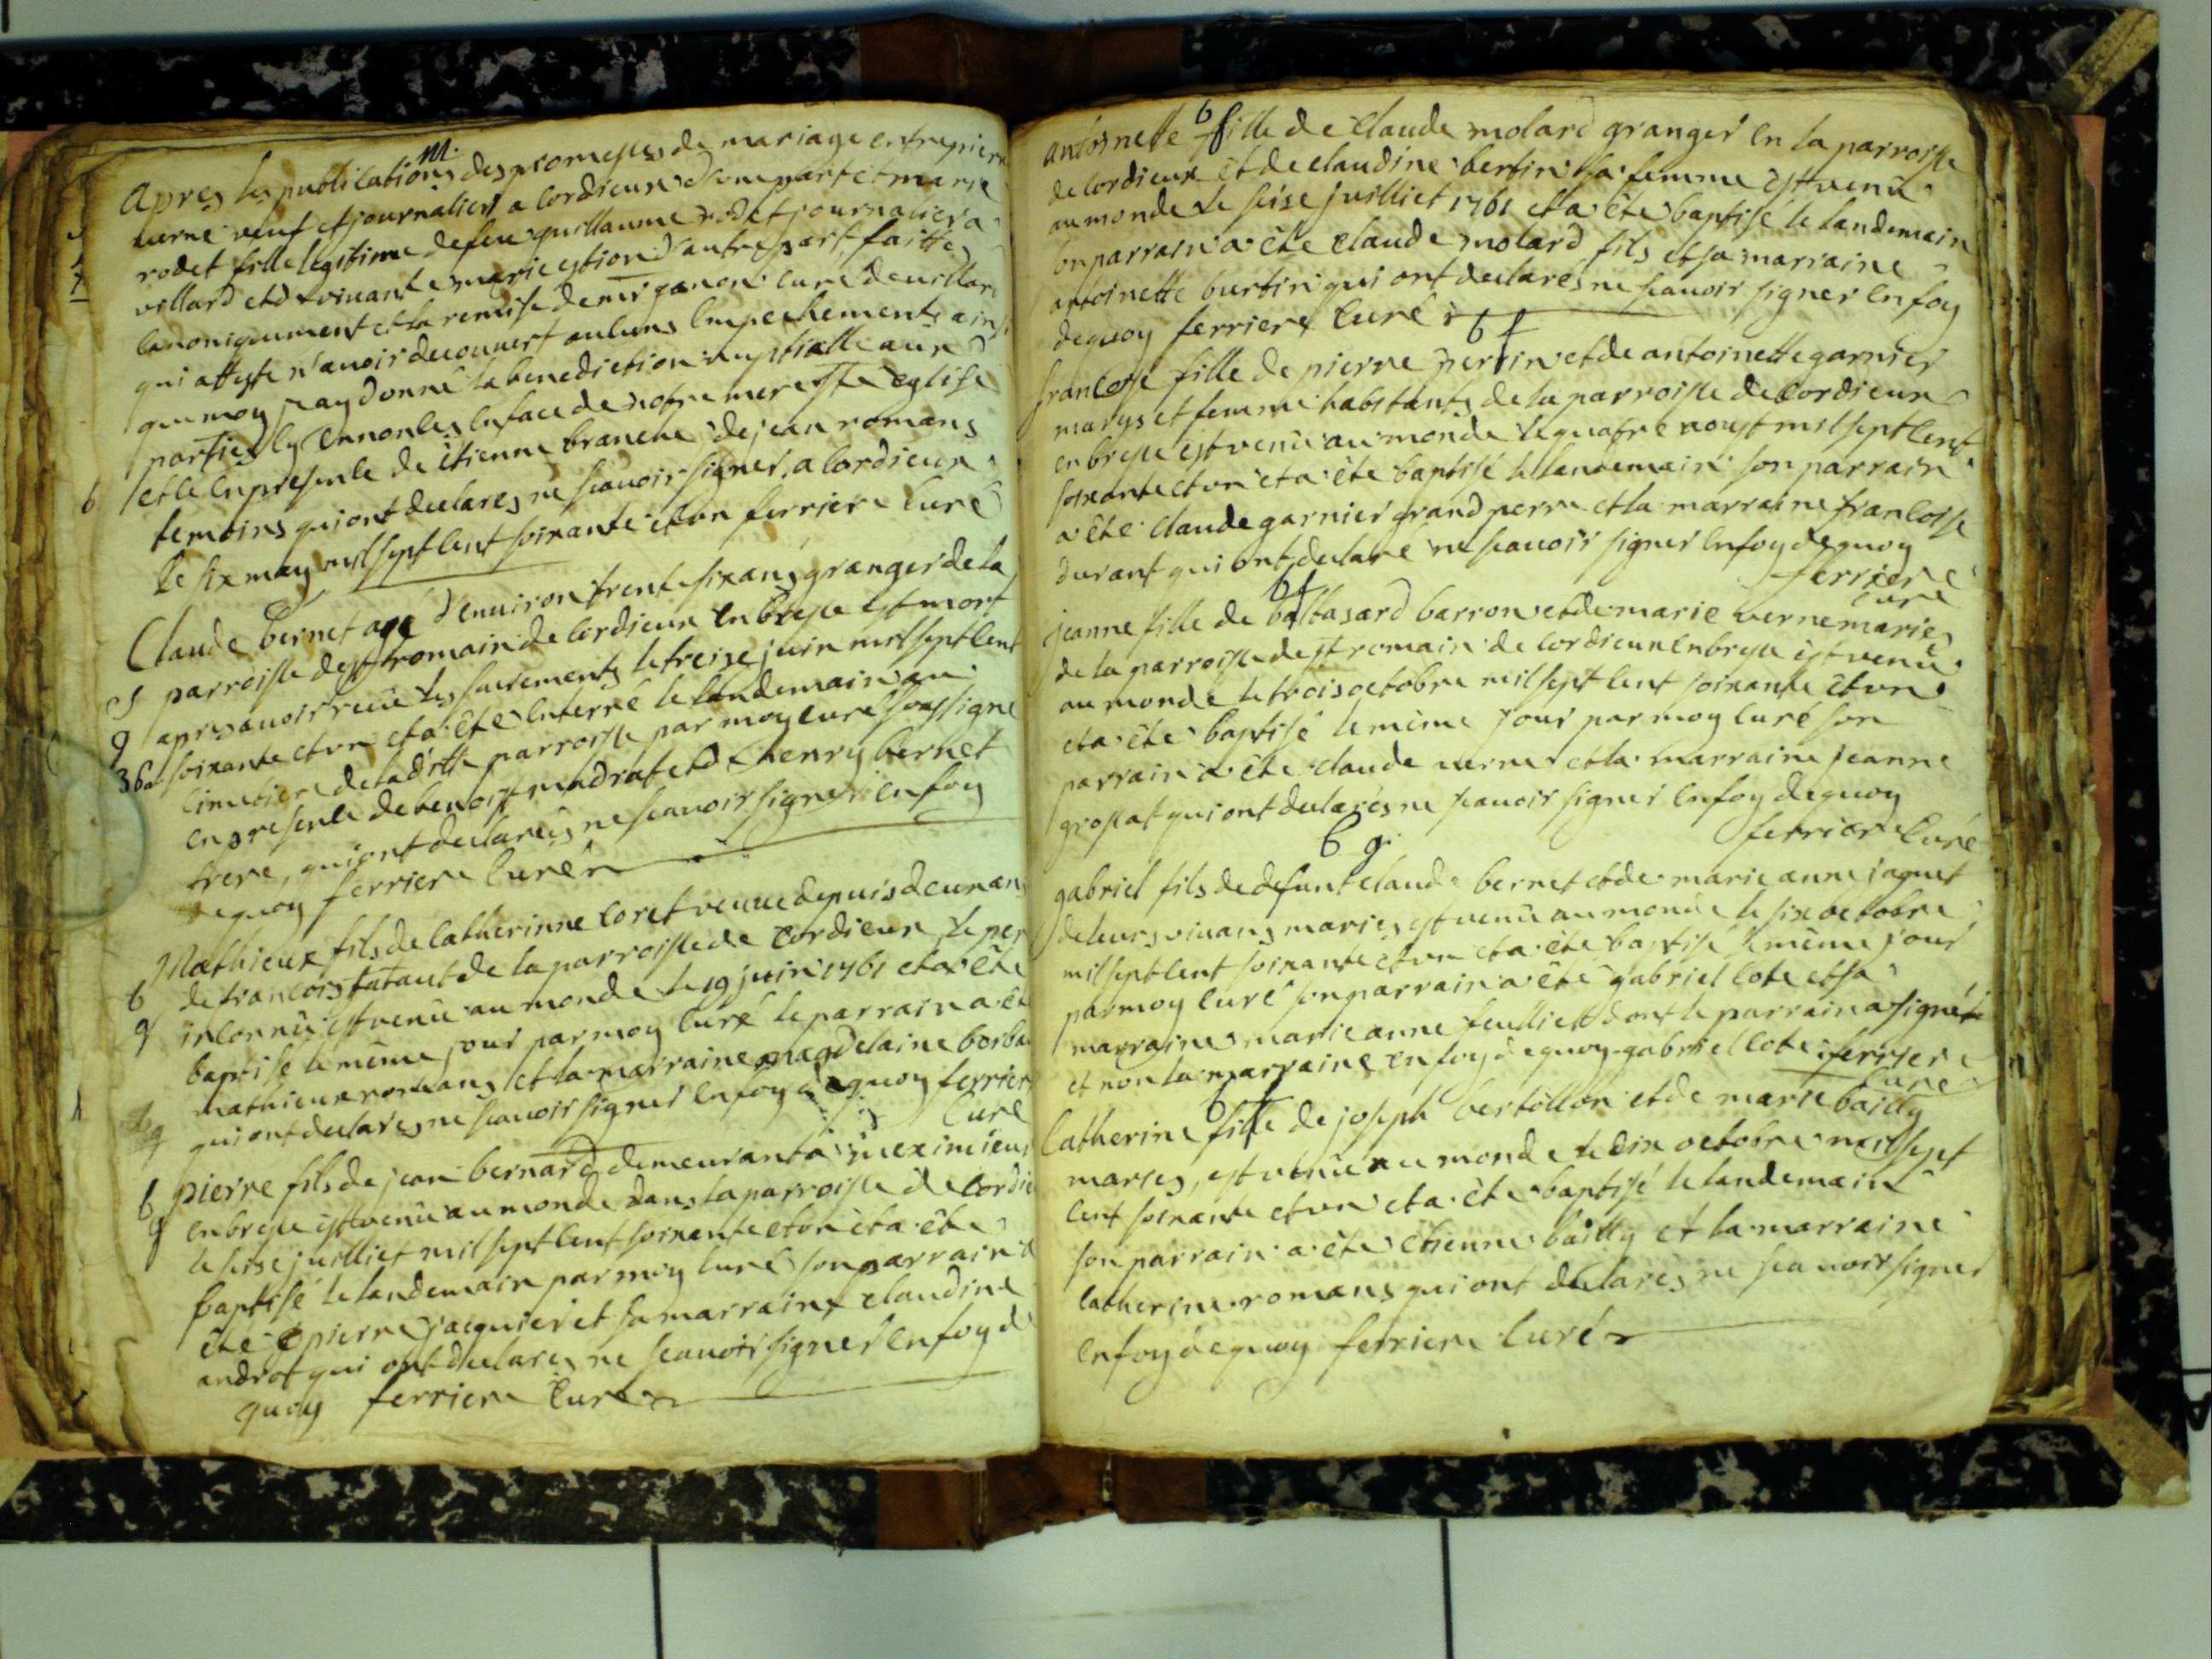 m.
apres les publications des promesses de mariage entre pierre
verne veuf et journalier a cordieux d'une part et marie
rodet fille legitime de feu guillaume rodet journalier a
villard et de vivante marie d'autre part, faittes
canoniquement et la remise de mr curé de villard
qui atteste n'avoir decouvert auluns empechements ainsi
que moy j'ay donné la benediction nuptialle aux
parties en face de notre mere ste eglise
et ce en presence de étienne branche de jean romans
temoins qui ont declarés ne scavoir signer, a cordieux
le six may mil sept cent soixante et un ferriere curé
Claude bernet agé d'environ trente six ans granger de la
parroisse de st romain de cordieux en bresse est mort
apres avoir recüe les sacrements le treize juin mil sept cent
36a soixante et un et a été enterré le landemain au
cimetiere de la ditte parroisse par moy curé soussigné
en presence de benoist mudrat et de henry bernet
frere, qui ont declarés ne scavoir signer en foy
de quoy ferriere curé
Mathieux fils de catherinne coret veuve depuis deux ans
b de francois tataut de la parroisse de cordieux, le per
g inconnû est venû au monde le 19 juin 1761 et a été
baptisé le même jour par moy curé le parrain a été
mathieux romans et la marraine magdelaine borba
qui ont declarés ne scavoir signer en foy de quoy ferriere
curé
b pierre fils de jean bernard demeurant a meximieux
g en bresse est venû au monde dans la parroisse de cordie
le seise juilliet mil sept cent soixante et un et a été
baptisé le landemain par moy curé son parrain a
été pierre jacquier et sa marraine claudine
androt qui ont declarés ne scavoir signer en foy de
quoy ferriere curé
b f
antoinette fille de claude molard granger en la parroisse
de cordieux et de claudine bertin sa femme est venû
au monde le seise juilliet 1761 et a été baptisé le landemain
son parrain a été claude molard fils et sa marraine
antoinette burtin qui ont declarés ne scavoir signer en foy
de quoy ferriere curé
b f
francoise fille de pierre perrin et de antoinette garnier
marys et femme habitants de la parroisse de cordieux
en bresse est venû au monde le quatre aoust mil sept cent
soixante et un et a été baptisé le landemain son parrain
a été claude garnier grand perre et la marraine francoise
durant qui ont declaré ne scavoir signer en foy de quoy
ferriere
curé
b f
jeanne fille de baltasard barron et de marie verne mariés
de la parroisse de st romain de cordieux en bresse est venû
au monde le trois octobre mil sept cent soixante et un
et a été baptisé le même jour par moy curé son
parrain a été claude verne et la marraine jeanne
grossat qui ont declarés ne scavoir signer en foy de quoy
ferriere curé
b g.
gabriel fils de defunt claude bernet et de marie anne jaquet
de leurs vivans mariés est venû au monde le six octobre
mil sept cent soixante et un et a été baptisé le même jour
par moy curé son parrain a été gabriel cote et sa
marraine marie anne feulliet dont le parrain a signé
et non la marraine en foy de quoy gabriel cote ferriere
curé
b f
Catherine fille de joseph bertollon et de marie bailly
mariés, est venû au monde le dix octobre mil sept
cent soixante et un et a été baptisé le landemain
son parrain a été étienne bailly et la marraine
catherine romans qui ont declarés ne scavoir signer
en foy de quoy ferriere curé